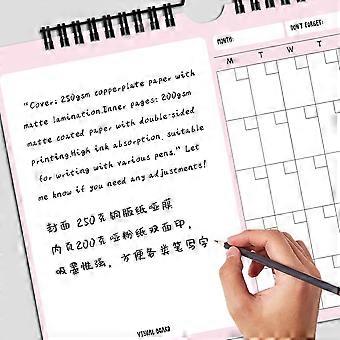 MONTH:
DON'T FORGET:
M T W
"Cover: 250gsm copperplate paper with
matte lamination.Inner pages: 200gsm
matte coated paper with double-sided
printing.High ink absorption, suitable
for writing with various pens." Let
me know if you need any adjustments!
封面 250克铜版纸哑膜
内页200克哑粉纸双面印,
吸墨性强, 方便各类笔写字
VISUAL BOARD